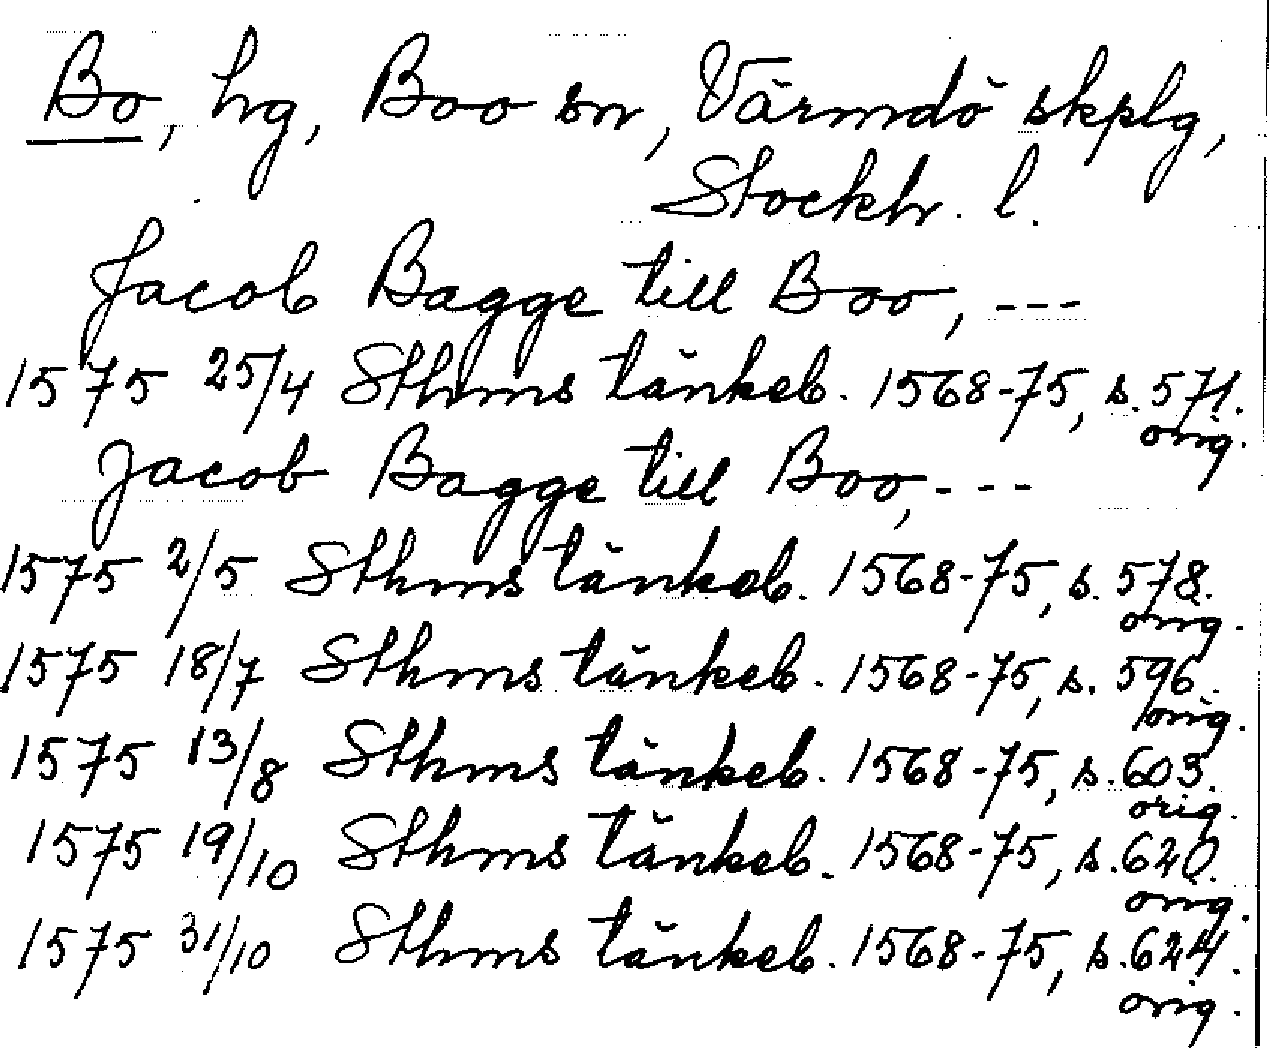 Bo, hg, Boo sn, Värmdö skplg,
Stockh. l.
Jacob Bagge till Boo, ---
1575 25/4 Sthms tänkeb. 1568-75, s. 571.
orig.
Jacob Bagge till Boo, ---
1575 2/5 Sthms tänkeb. 1568-75, s. 578.
orig.
1575 18/7 Sthms tänkeb. 1568-75, s. 596.
orig.
1575 13/8 Sthms tänkeb. 1568-75, s. 603.
orig.
1575 19/10 Sthms tänkeb. 1568-75, s. 620.
orig.
1575 31/10 Sthms tänkeb. 1568-75, s. 624.
orig.